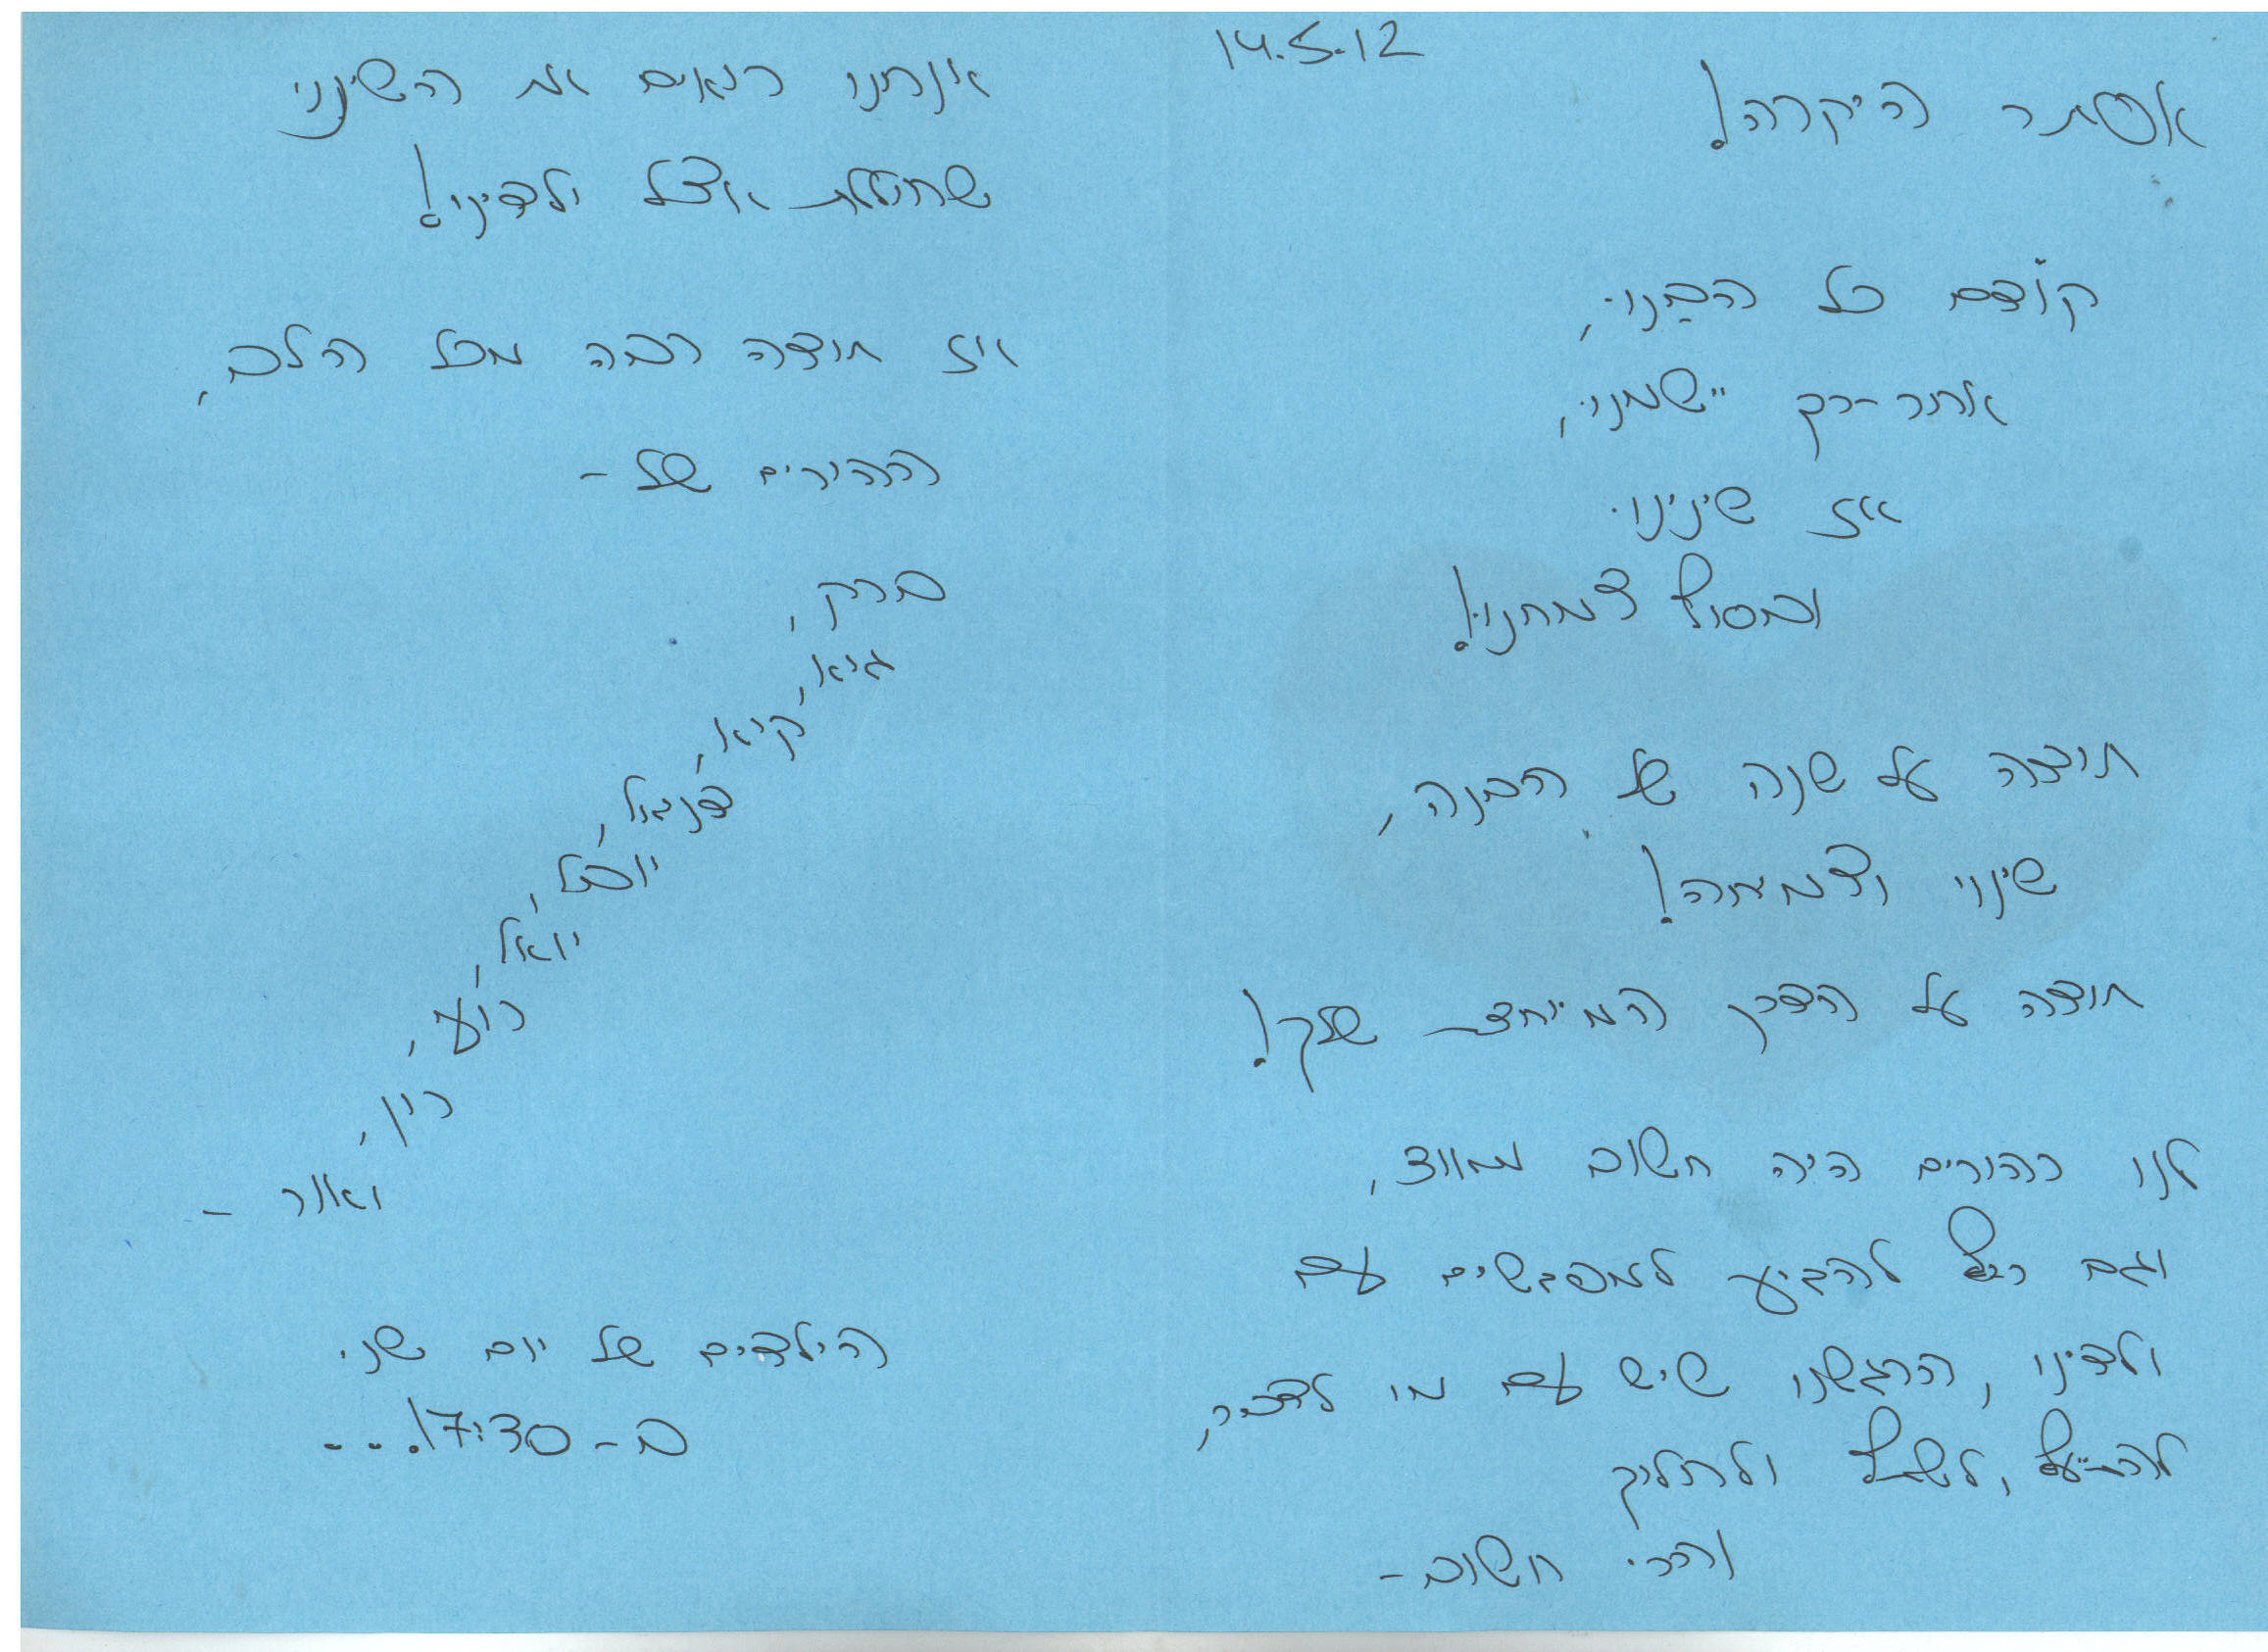 14.5.12
אסתר היקרה!
קודם כל הבַנו,
אחר-כך יישמנו,
אז שינינו
ובסוף צמחנו!
תודה על שנה של הבנה,
שינוי וצמיחה!
תודה על הדרך המיוחדת שלך!
לנו כהורים היה חשוב מאוד,
וגם כיף להגיע למפגשים עם
ילדינו, הרגשנו שיש עם מי לדבר,
להתייעץ, לשתף ולהליך
והכי חשוב-
אנחנו רואים את השינוי
שחוללת אצל ילדינו!
אז תודה רבה מכל הלב,
ההורים של -
ברק,
גיא,
קיא,
דניאל,
יובל,
יואל,
רועי,
רין,
ואור -
הילדים של יום שני
ב- 17:30...